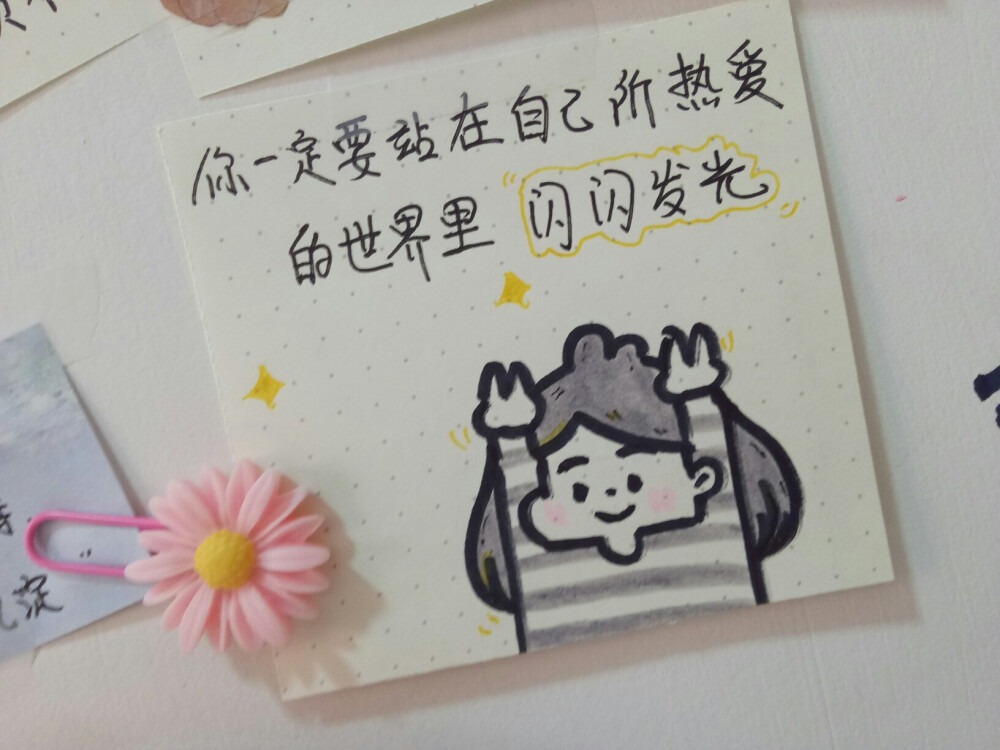 你一定要站在自己所热爱
的世界里 闪闪发光
淀